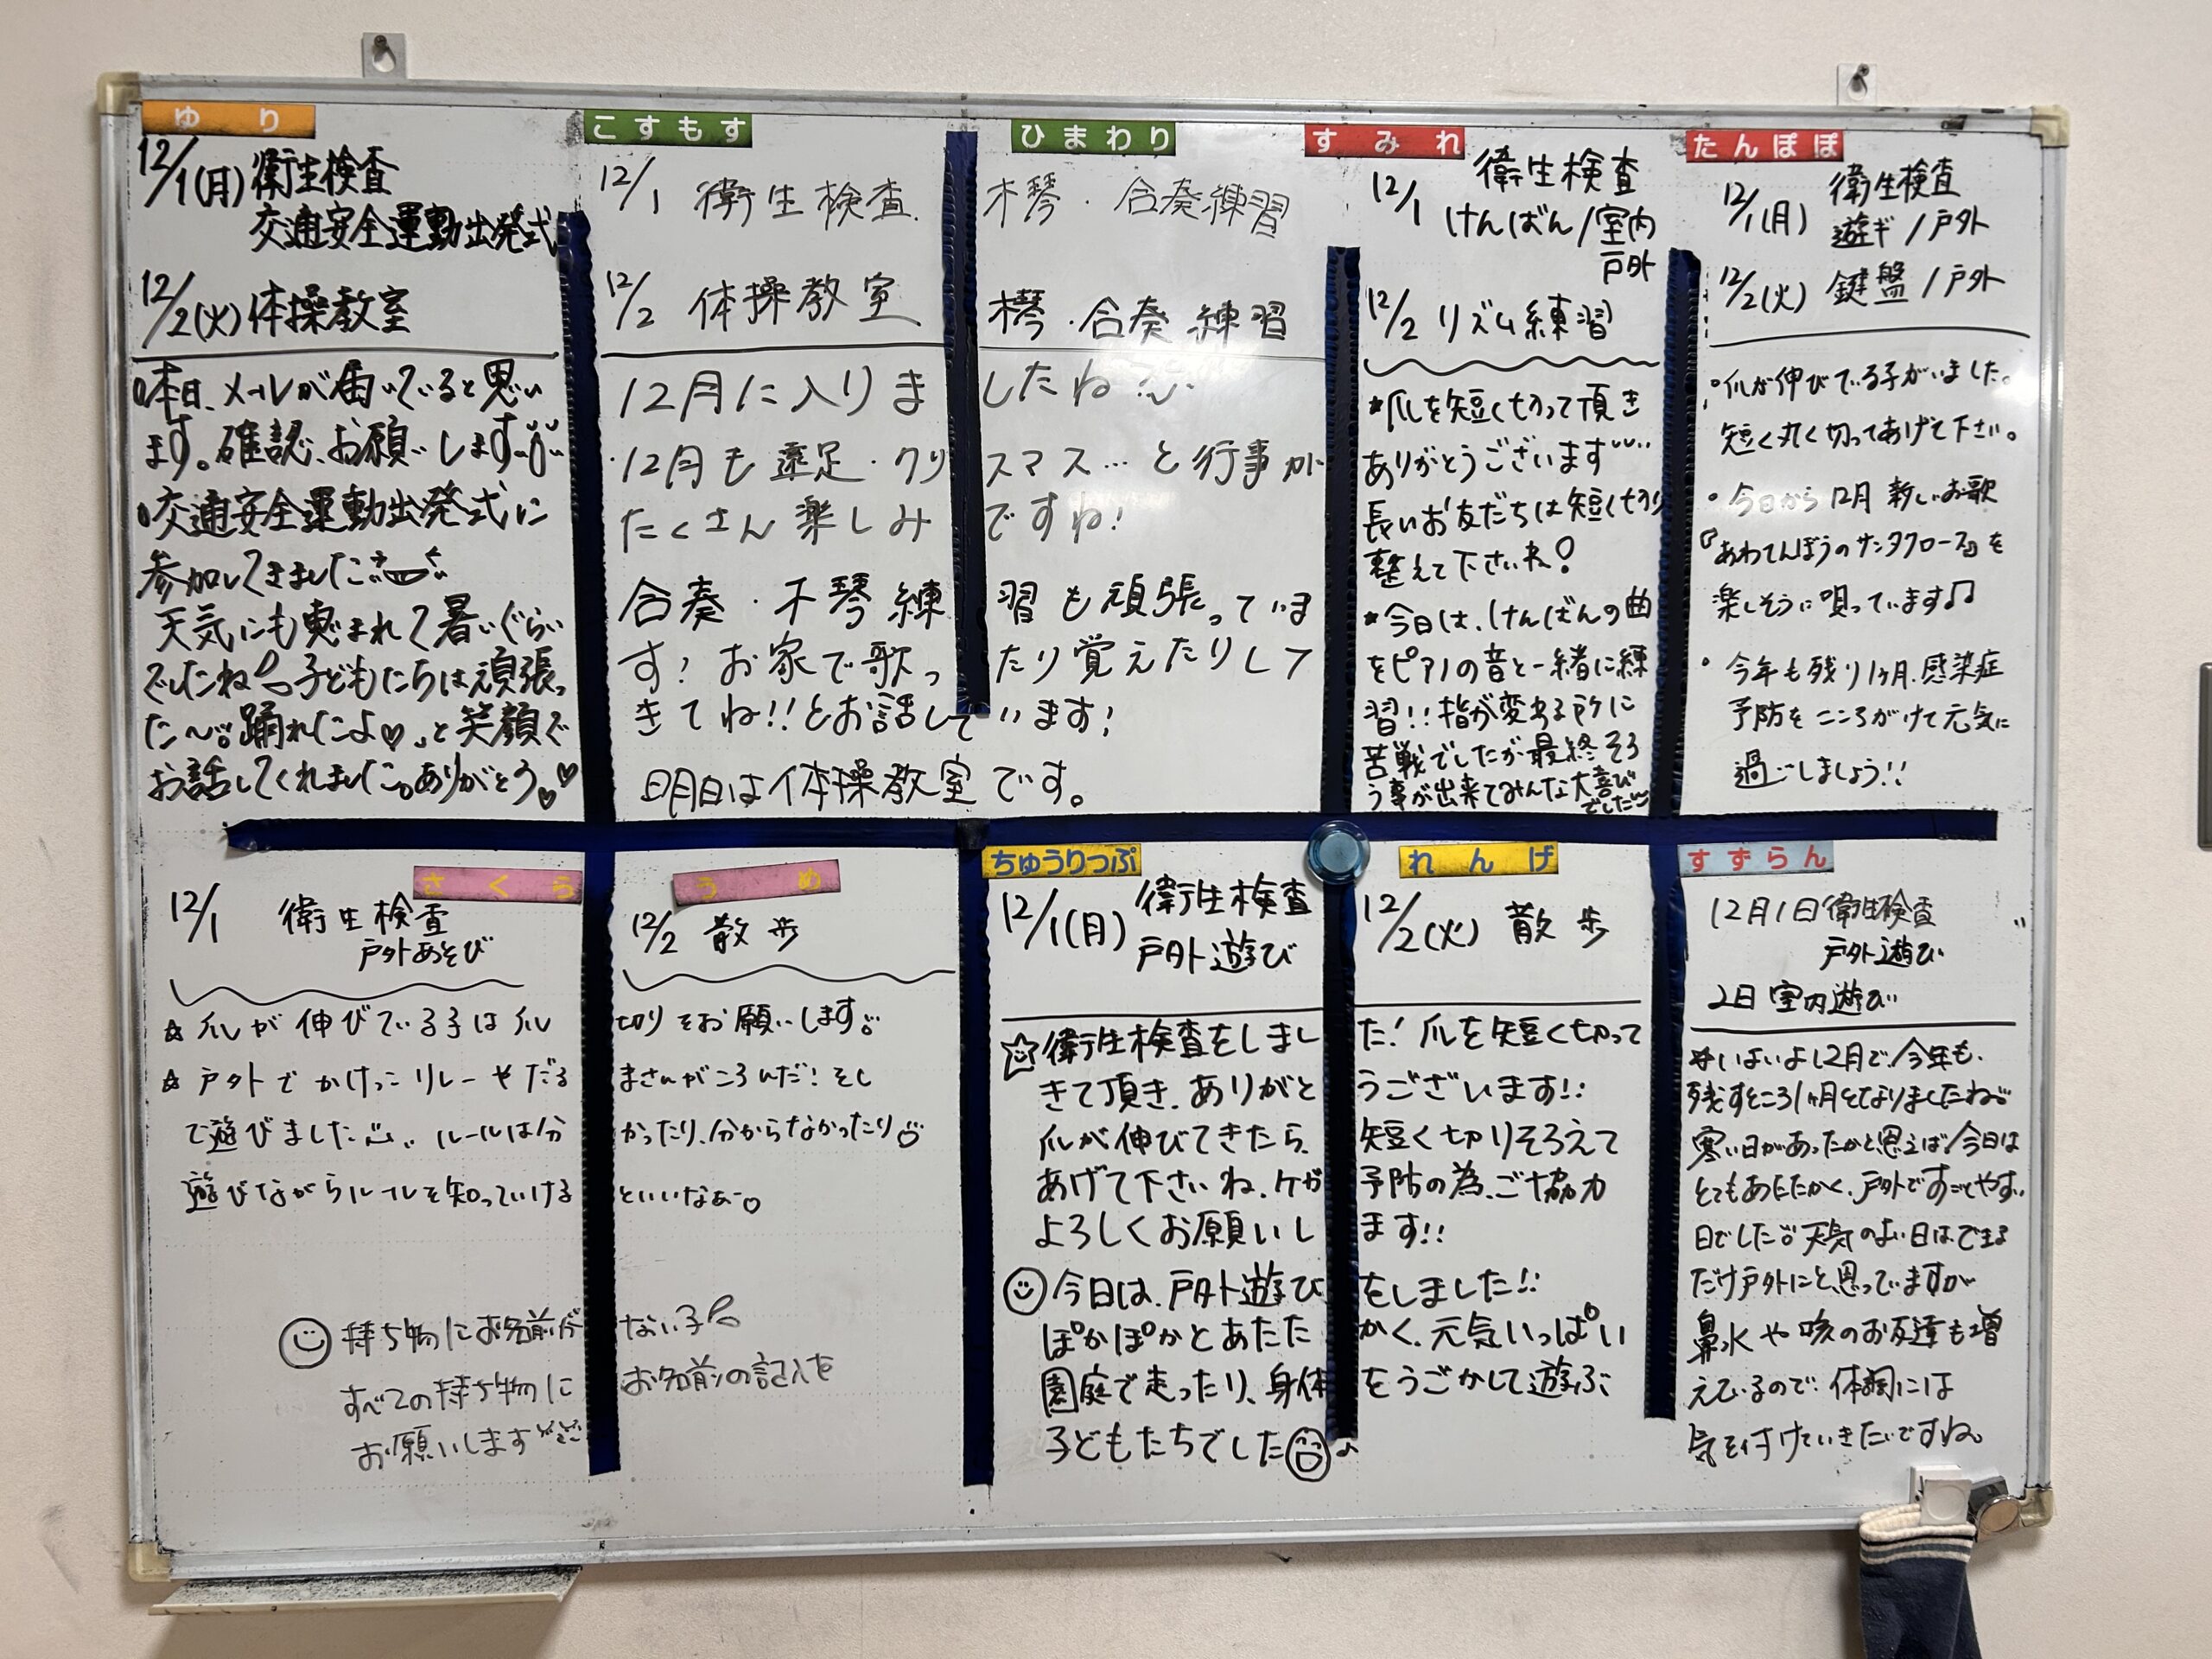 ゆり
12/1(月) 衛生検査
交通安全運動出発式
12/2(火) 体操教室
本日、メールが届いていると思い
ます。確認、お願いします
交通安全運動出発式に
参加してきました
天気にも恵まれて暑いぐらい
でしたね 子どもたちは頑張っ
た〜。踊れたよ♡」と笑顔で
お話してくれました。ありがとう♡♡
こすもす ひまわり
12/1 衛生検査. 木琴・合奏練習
12/2 体操教室 木琴・合奏練習
12月に入りましたね
12月も遠足・クリスマス…と行事が
たくさん楽しみですね!
合奏・木琴練習も頑張っていま
す! お家で歌ったり覚えたりして
きてね!!とお話しています!
明日は体操教室です。
すみれ
12/1 衛生検査
けんばん/室内
戸外
12/2 リズム練習
*爪を短く切って頂き
ありがとうございます
長いお友だちは短く切り
整えて下さいね!
*今日は、けんばんの曲
をピアノの音と一緒に練
習!!指が変わる所に
苦戦でしたが最終そろ
う事が出来てみんな大喜び
でした
たんぽぽ
12/1(月) 衛生検査
遊ギ/戸外
12/2(火) 鍵盤/戸外
・爪が伸びている子がいました。
短く丸く切ってあげて下さい。
・今日から12月 新しいお歌
『あわてんぼうのサンタクロース』を
楽しそうに唄っています♫
・今年も残り1ヶ月、感染症
予防をこころがけて元気に
過ごしましょう!!
さくら うめ
12/1 衛生検査 12/2 散歩
戸外あそび
☆ 爪が伸びている子は爪切りをお願いします
☆ 戸外でかけっこリレーやだるまさんがころんだ!をし
て遊びました ルールは分かったり、分からなかったり
遊びながらルールを知っていけるといいなぁ
持ち物にお名前がない子
すべての持ち物にお名前の記入を
お願いします
ちゅうりっぷ れんげ
12/1(月) 衛生検査 12/2(火) 散歩
戸外遊び
☆衛生検査をしました! 爪を短く切って
きて頂き、ありがとうございます!!
爪が伸びてきたら、短く切りそろえて
あげて下さいね、ケガ予防の為、ご協力
よろしくお願いします!!
今日は、戸外遊びをしました!!
ぽかぽかとあたたかく、元気いっぱい
園庭で走ったり、身体をうごかして遊ぶ
子どもたちでした♪
すずらん
12月1日衛生検査
戸外遊び
2日 室内遊び
*いよいよ12月で、今年も、
残すところ1ヶ月となりましたね
寒い日があったかと思えば、今日は
とてもあたたかく、戸外ですごしやすい
日でした 天気のよい日はできる
だけ戸外にと思っていますが
鼻水や咳のお友達も増
えているので、体調には
気を付けていきたいですね。